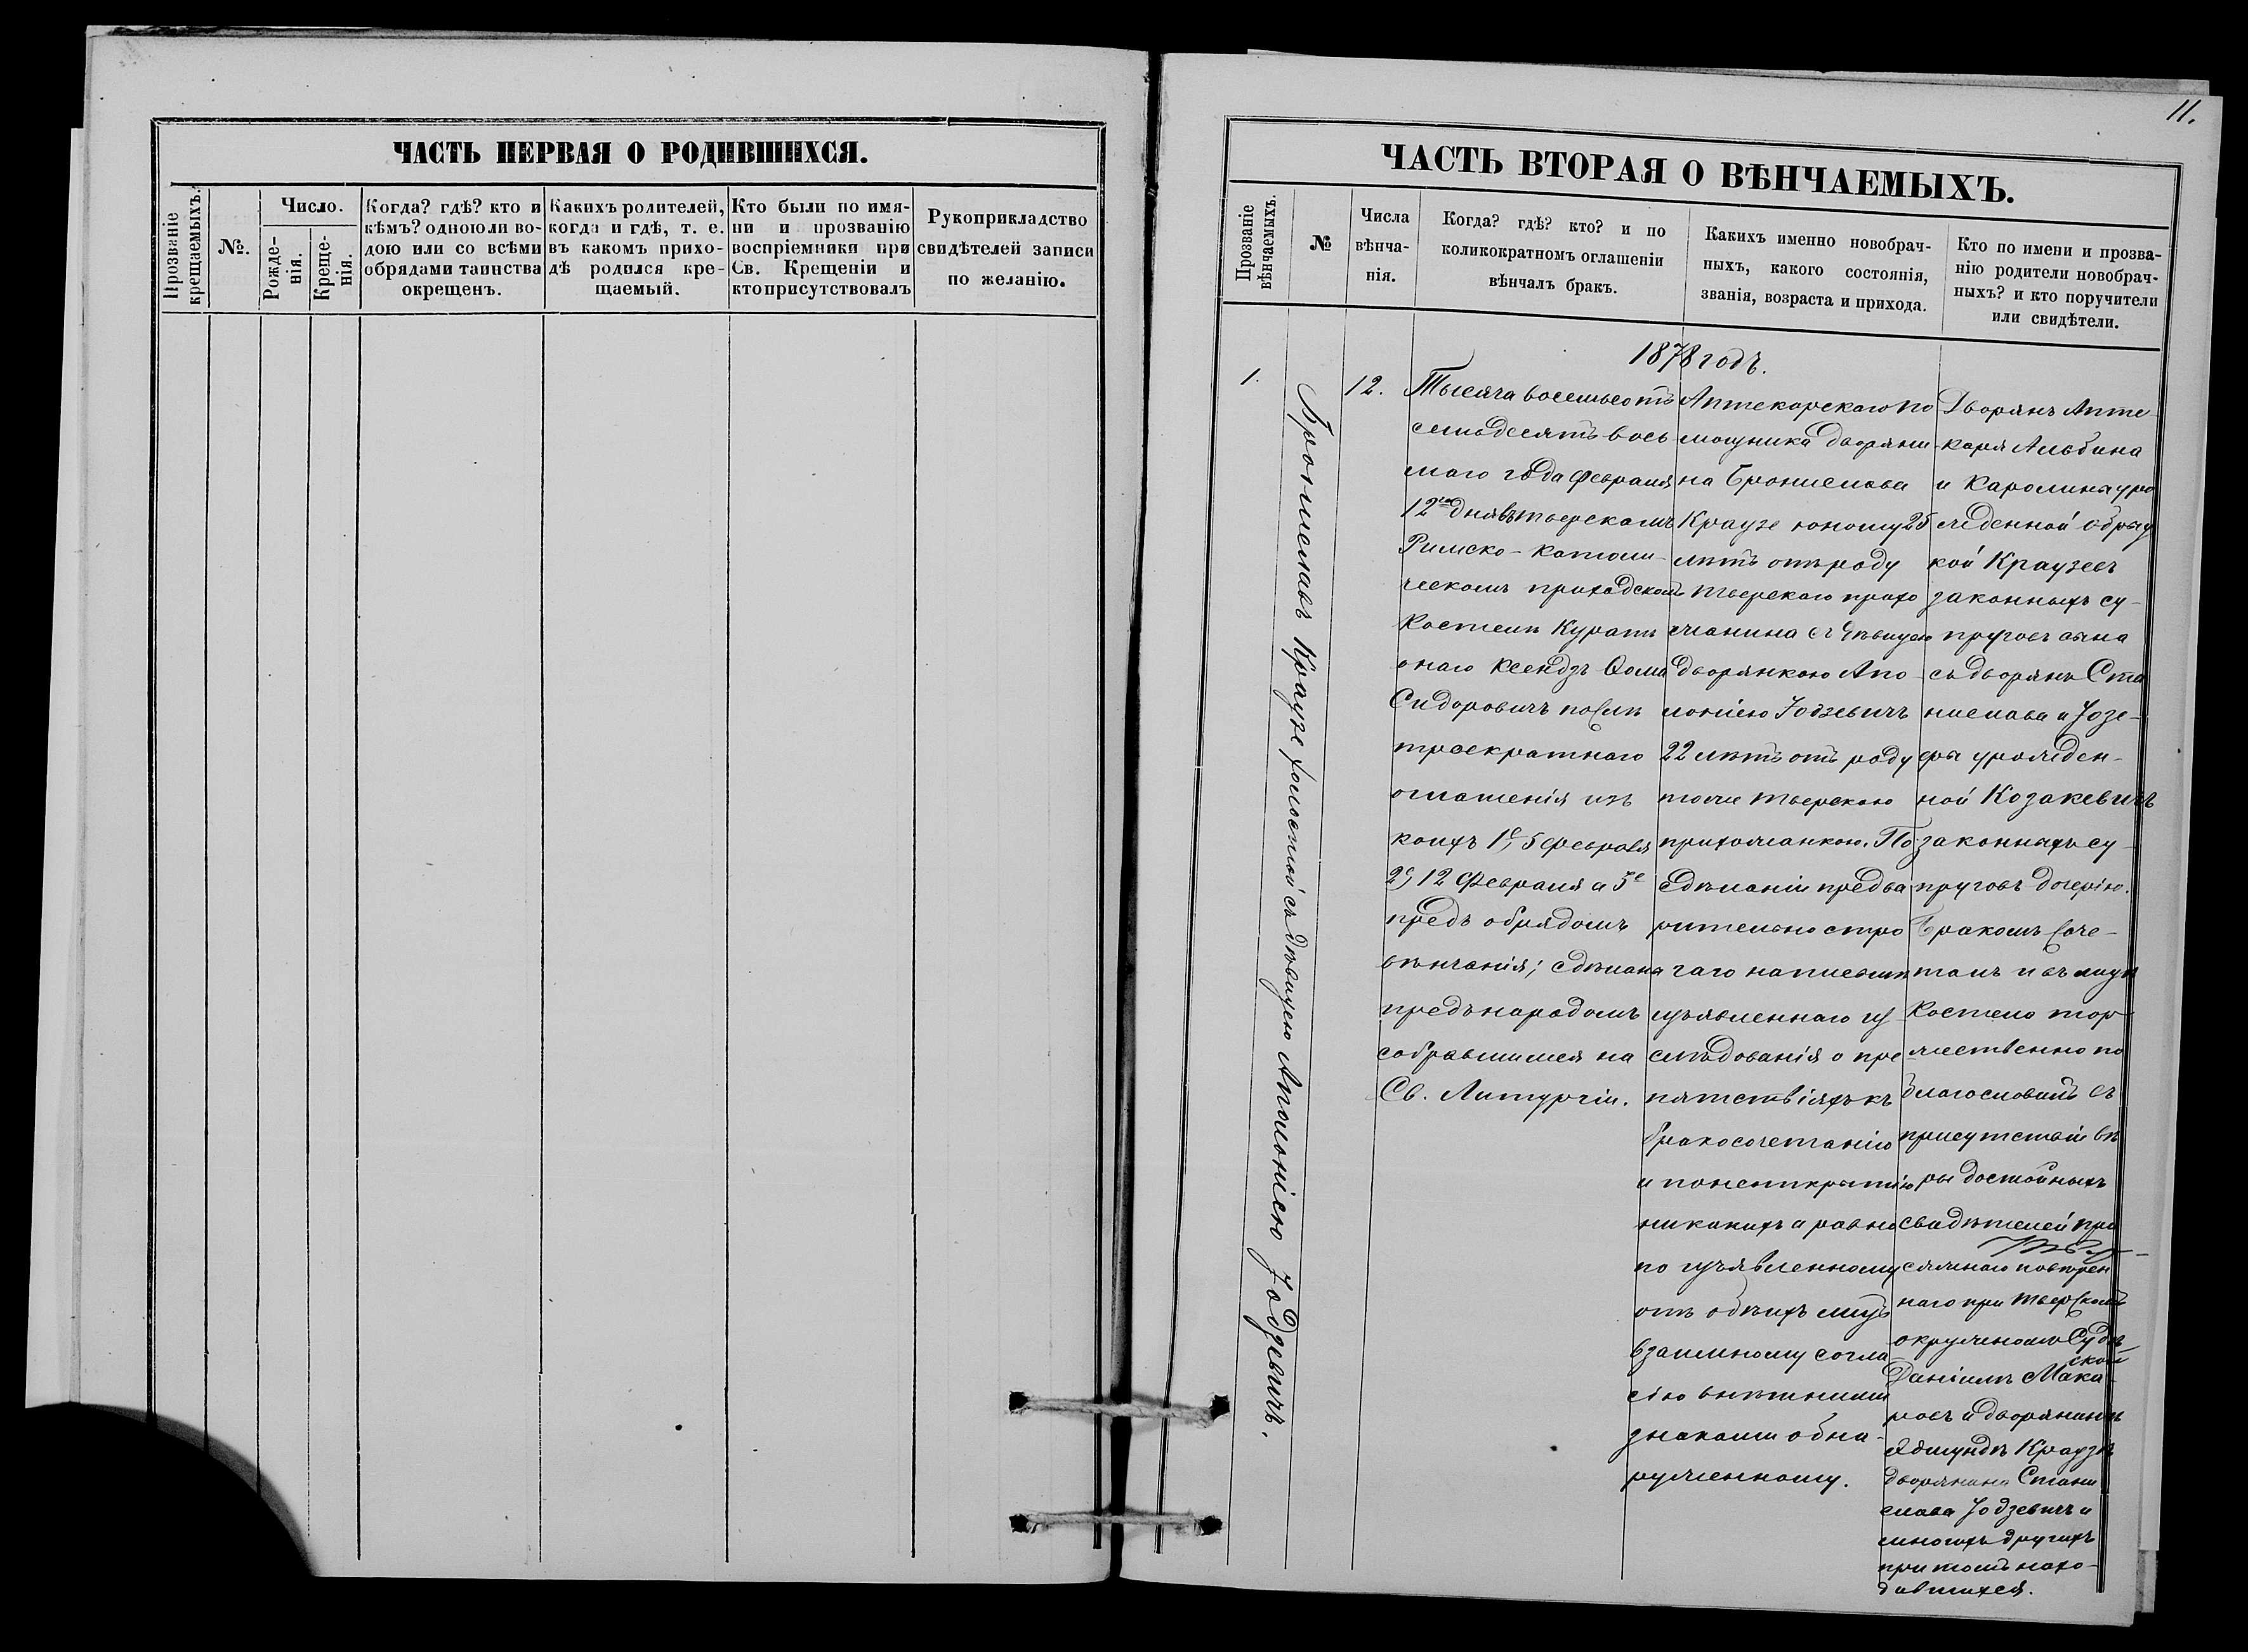 ЧАСТЬ ПЕРВАЯ О РОДИВШИХСЯ.
Прозваніе
крещаемыхъ.
№.
Число.
Рожде-
нія.
Креще-
нія.
Когда? гдѣ? кто и
кѣмъ? одноюли во-
дою или со всѣми
обрядами таинства
окрещенъ.
Какихъ родителей,
когда и гдѣ, т. е.
въ какомъ прихо-
дѣ родился кре-
щаемый.
Кто были по имя-
ни и прозванію
воспріемники при
Св. Крещеніи и
кто присутствовалъ
Рукоприкладство
свидѣтелей записи
по желанію.
11.
ЧАСТЬ ВТОРАЯ О ВѢНЧАЕМЫХЪ.
Прозваніе
вѣнчаемыхъ.
№
Числа
вѣнча-
нія.
Когда? гдѣ? кто? и по
коликократномъ оглашеніи
вѣнчалъ бракъ.
Какихъ именно новобрач-
ныхъ, какого состоянія,
званія, возраста и прихода.
Кто по имени и прозва-
нію родители новобрач-
ныхъ? и кто поручители
или свидѣтели.
1878 годъ.
1.
Брониславъ Краузе холостой съ дѣвицею Аполоніею Іодзевичъ.
12.
Тысяча восемьсотъ
семьдесятъ вось
маго года февраля
12го дня въ тверскомъ
Римско-Католи-
ческомъ приходскомъ
Костелѣ Куратъ
онаго Ксендзъ Ѳома
Сидоровичъ послѣ
троекратнаго
оглашенія изъ
коихъ 1е, 5 февраля
2е, 12 февраля а 3е
предъ обрядомъ
вѣнчанія; сдѣлана
предъ народомъ
собравшимся на
Св. Литургіи.
Аптекарскаго по
мощника дворяни
на Бронислава
Краузе юношу 25
лѣтъ отъ роду
тверскаго прихо
жанина съ дѣвицею
дворянкою Апо
лоніею Іодзевичъ
22 лѣтъ отъ роду
тоже тверскою
прихожанкою. По
сдѣланіи предва
рительно стро
гаго на письмѣ
изъявленнаго из
слѣдованія о пре
пятствіяхъ къ
бракосочетанію
и по неоткрытію
никакихъ а равно
по изъявленному
отъ обѣихъ лицъ
взаимному согла
сію внѣшними
знаками обна-
руженному.
Дворянъ Апте-
каря Альбина
и Каролины уро
жденной
кой Краузевъ
законныхъ су-
пруговъ сына
съ дворянъ Ста
нислава и Іозе-
фы урожден-
ной Козакевичъ
законныхъ су-
пруговъ дочерію.
Бракомъ соче-
талъ и въ лицѣ
Костела тор
жественно по
благословилъ въ
присутствіи вѣ
ры достойныхъ
свидѣтелей при
сяжнаго повѣрен
наго при тверскомъ
окружномъ Судѣ
Даніилъ Мака
ровской и дворянинъ
Эдмундъ Краузе
дворянина Стани
слава Іодзевичъ и
многихъ другихъ
при томъ нахо-
дившихся.